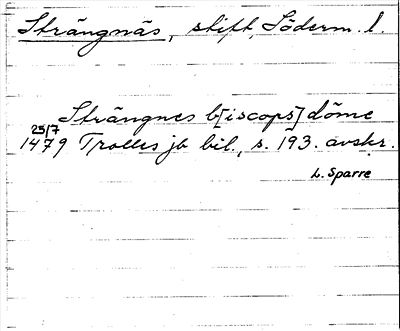 Strängnäs, stift, Söderm. l.
Strängnes b[iscops]döme
25/7
1479 Trolles jb bil., s. 193. avskr.
L. Sparre